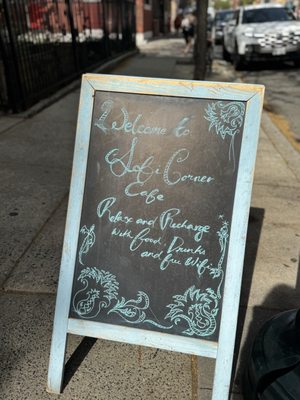 Welcome to
Sofi Corner
Cafe
Relax and Recharge
with food, Drinks
and free Wifi.